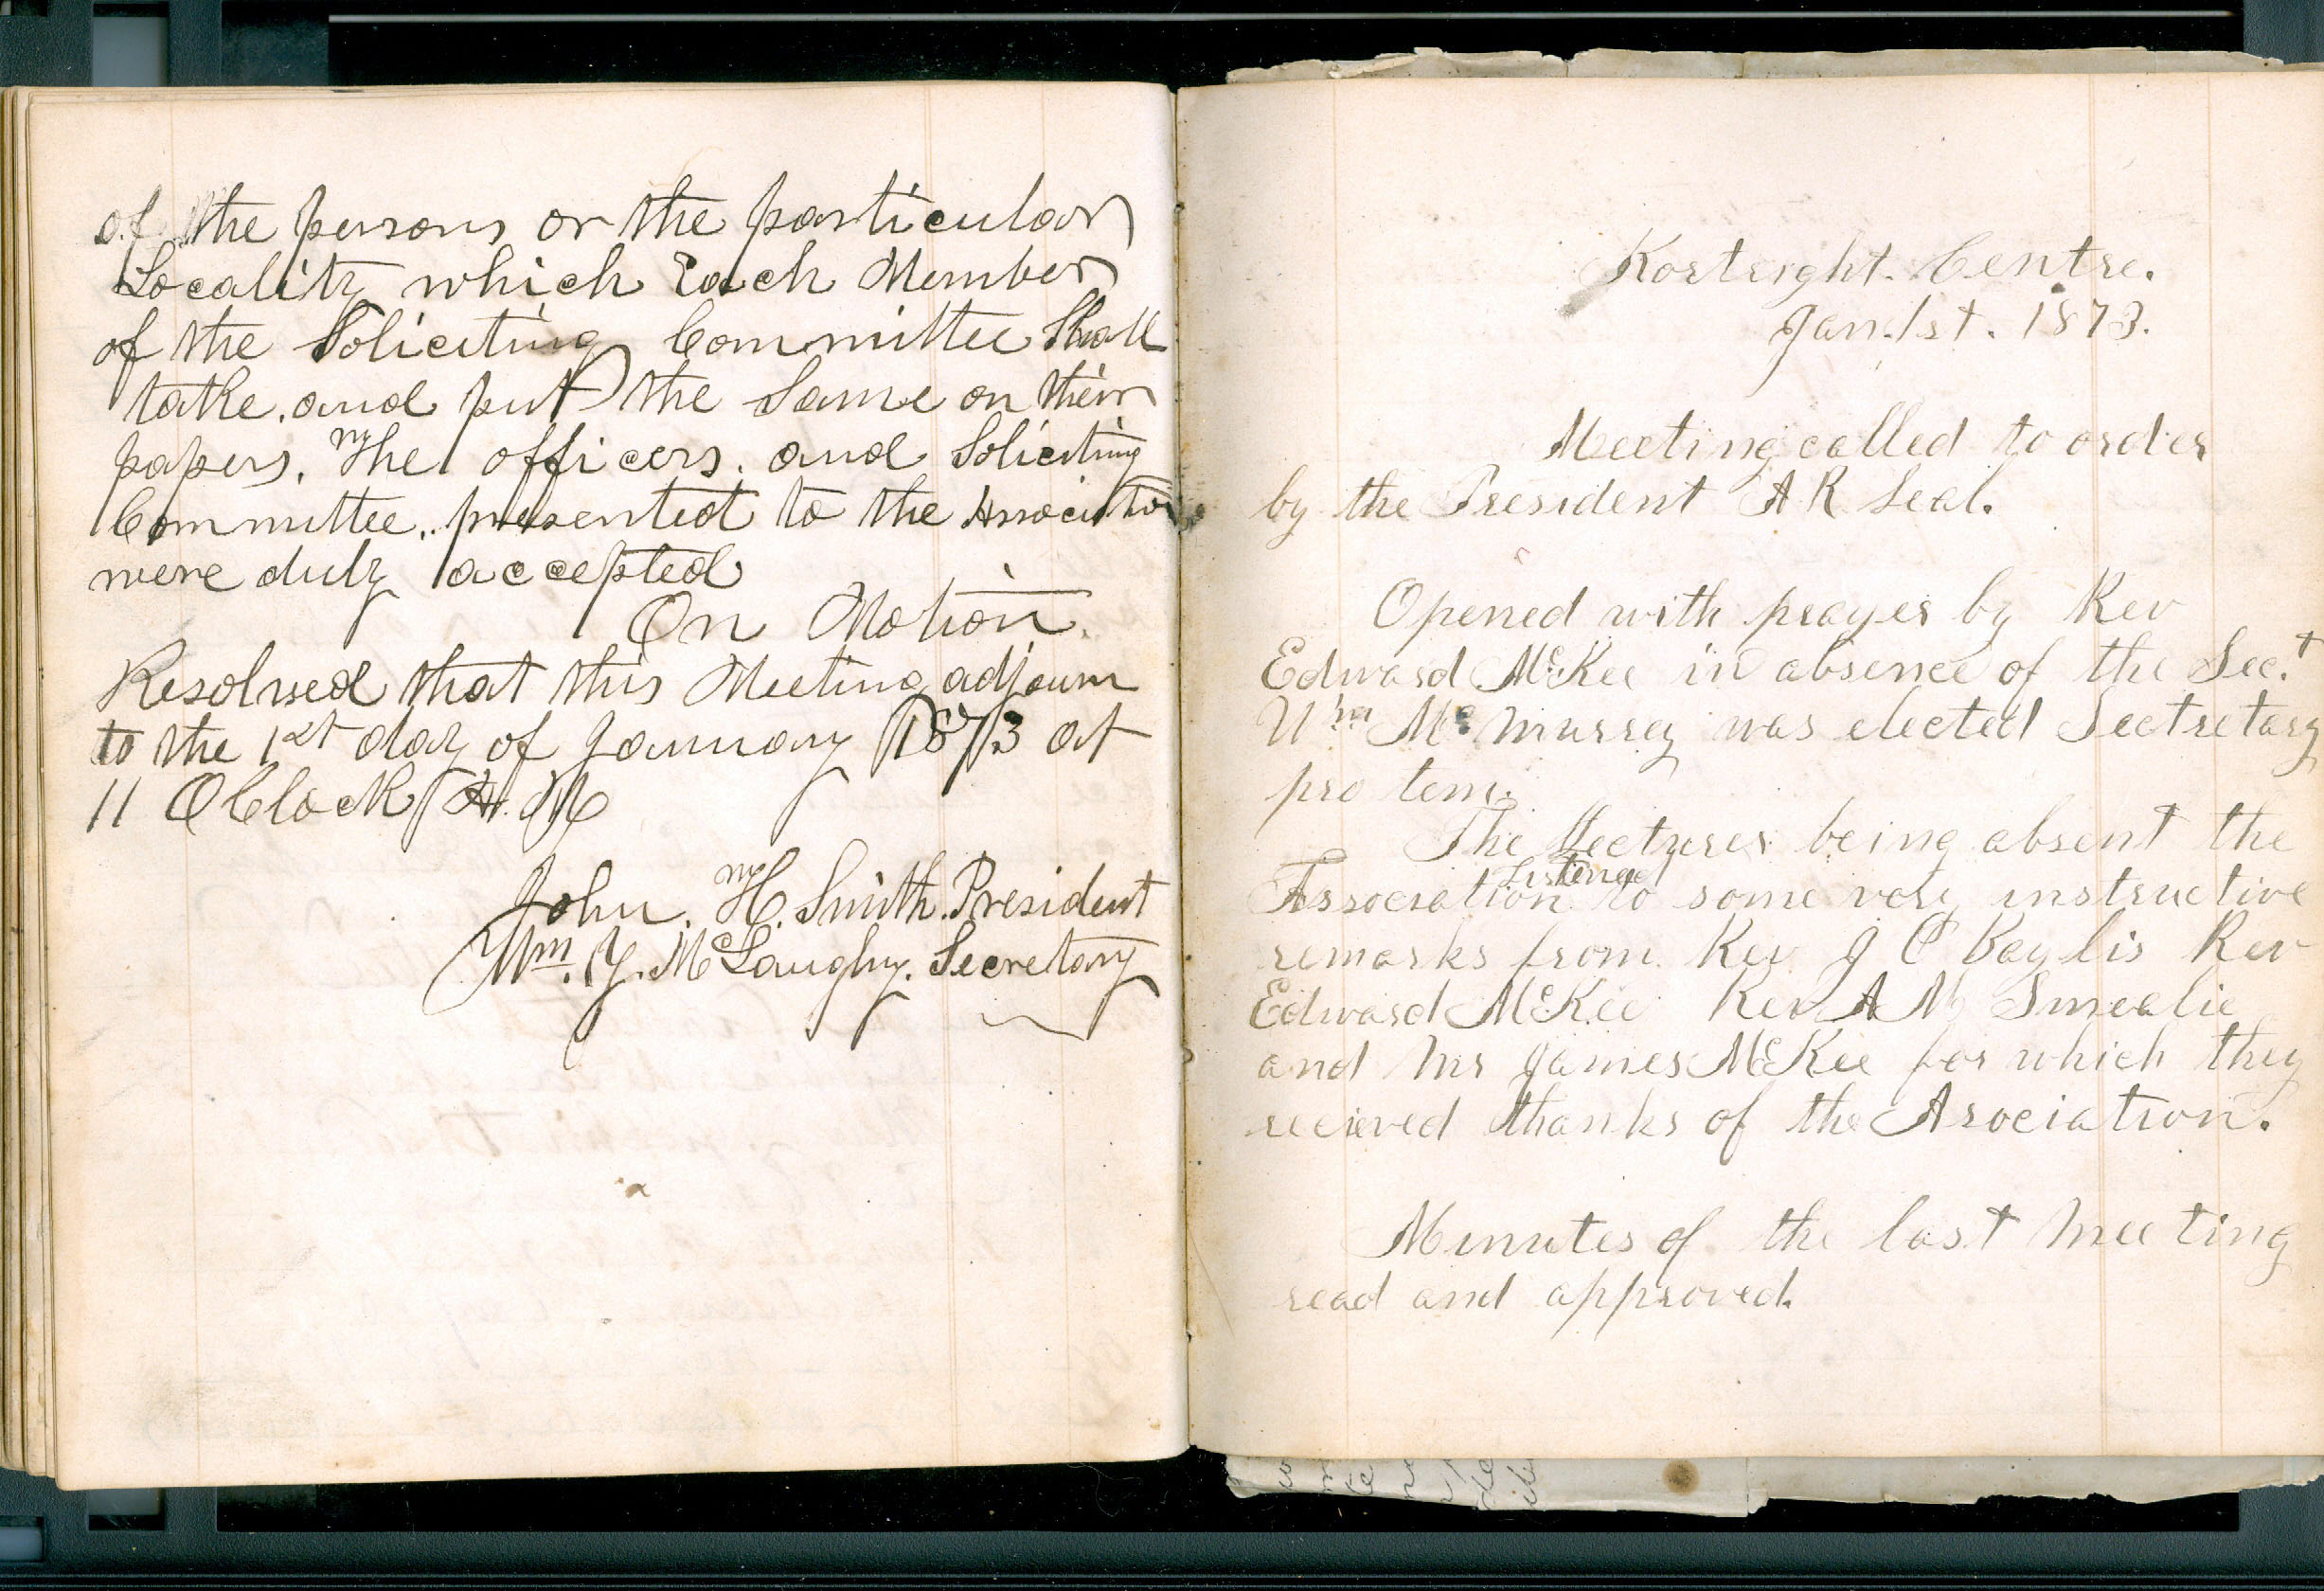 of the persons or the particular
Locality which Each Member
of the Soliciting Committee Shall
take. and put the Same on their
papers. The officers. and Soliciting
Committee. presented to the
were duly accepted
On Motion.
Resolved that this Meeting adjourn
to the 1st day of January 1873 at
11 OClock A. M
John. H. Smith. President
Wm. Y. McLaughry. Secretary
Kortright. Centre.
Jan. 1st. 1873.
Meeting called to order
by the President A R Seal.
Opened with prayer by Rev
Edward McKee in absence of the Sect.
Wm McMurrey was elected Sectretary
pro tem.
The Lecturer being absent the
Listened
Association to some very instructive
remarks from Rev J C Baylis Rev
Edward McKee Rev A M Smealie
and Mr James McKee for which they
recieved thanks of the Asociation.
Minutes of the last Meeting
read and approved.